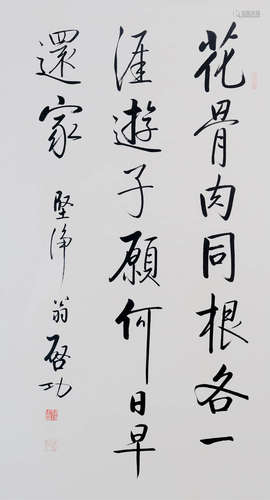 花骨肉同根各一
涯遊子願何日早
還家
堅淨翁
啓功